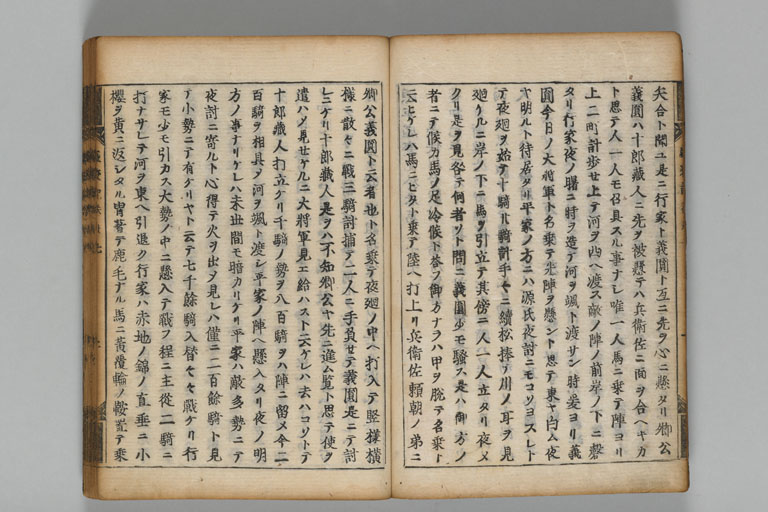 矢合ト聞ユ是ニ行家ト義圓ト互ニ先ヲ心ニ懸タリ卿公
義圓ハ十郎藏人ニ先ヲ被懸テハ兵衛佐ニ面ヲ合ヘキカ
ト思テ人一人モ召具スル事ナシ唯一人馬ニ乗テ陣ヨリ
上二町計歩セ上テ河ヲ西ヘ渡ス敵ノ陣ノ前岸ノ下ニ磬
タリ行家夜ノ曙ニ時ヲ造テ河ヲ颯ト渡サン時爰ヨリ義
圓今日ノ大將軍ト名乗テ先陣ヲ懸ント思テ東ヤ白ム夜
ヤ明ルト待居タリ平家ノ方ニハ源氏夜討ニモコソヨスレト
テ夜廻ヲ始テ十騎計手々ニ續松捧テ川ノ耳ヲ見
廻ケルニ岸ノ下ニ馬ヲ引立テ其傍ニ人一人立タリ夜メ
クリ是ヲ見咎テ何者ソト問ニ義圓少モ騒ス是ハ御方ノ
者ニテ候カ馬ノ足冷候ト答フ御方ナラハ甲ヲ脱テ名乗ト
云ケレハ馬ニヒタト乗テ陸ヘ打上リ兵衛佐頼朝ノ弟ニ
卿公義圓ト云者也ト名乗テ夜廻ノ中ヘ打入テ竪様横
様ニ散々ニ戦三騎討捕テ二人ニ手負セテ義圓是ニテ討
レニケリ十郎藏人是ヲハ不知卿公ヤ先ニ進ム覧ト思テ使ヲ
遣ハメ見セケルニ大將軍見エ給ハスト云ケレハ去ハコソトテ
十郎藏人打立ケリ千騎ノ勢ヲ八百騎ヲハ陣ニ留メ今二
百騎ヲ相具メ河ヲ颯ト渡シ平家ノ陣ヘ懸入タリ夜ノ明
方ノ事ナリケレハ未世間モ暗カリケリ平家ハ敵多勢ニテ
夜討ニ寄ルト心得テ火ヲ出ヲ見レハ僅ニ二百餘騎ト見
テ小勢ニテ有ケリヤト云テ七千餘騎入替々々戦ケリ行
家モ少モ引カス大勢ノ中ニ懸入テ戦フ程ニ主従二騎ニ
打ナサレテ河ヲ東ヘ引退ク行家ハ赤地ノ錦ノ直垂ニ小
櫻ヲ黄ニ返シタル冑著テ鹿毛ナル馬ニ黄覆輪ノ鞍置テ乗